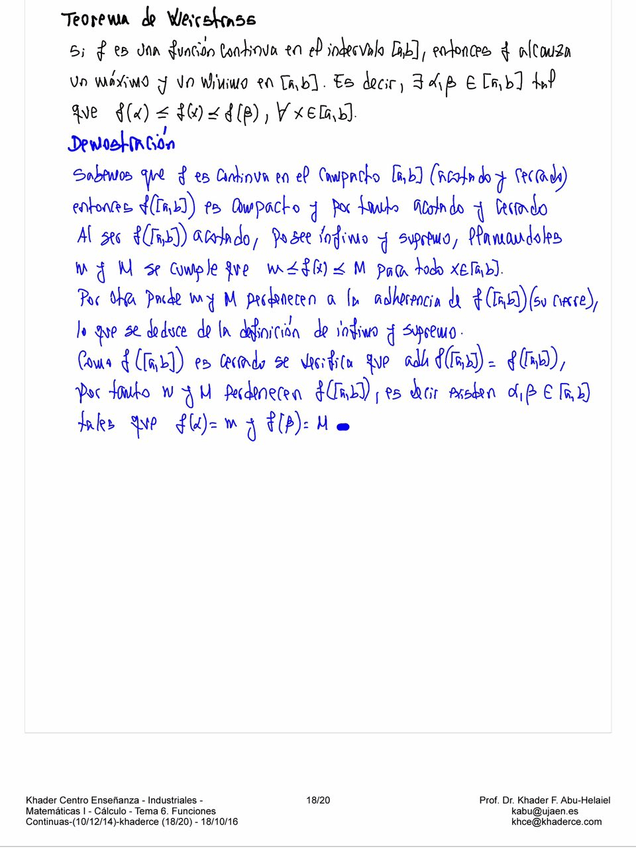 Teorema de Weirstrass
Si f es una función continua en el intervalo [a,b], entonces f alcanza
un máximo y un mínimo en [a,b]. Es decir, ∃ α,β ∈ [a,b] tal
que f(α) ≤ f(x) ≤ f(β), ∀ x∈[a,b].
Demostración
Sabemos que f es continua en el compacto [a,b] (acotado y cerrado)
entonces f([a,b]) es compacto y por tanto acotado y cerrado
Al ser f([a,b]) acotado, posee ínfimo y supremo, llamandoles
m y M se cumple que m ≤ f(x) ≤ M para todo x∈[a,b].
Por otra parte m y M pertenecen a la adherencia de f([a,b]) (su cierre),
lo que se deduce de la definición de ínfimo y supremo.
Como f([a,b]) es cerrado se verifica que adh f([a,b]) = f([a,b]),
por tanto m y M pertenecen f([a,b]), es decir existen α,β ∈ [a,b]
tales que f(α) = m y f(β) = M
Khader Centro Enseñanza - Industriales - 18/20 Prof. Dr. Khader F. Abu-Helaiel
Matemáticas I - Cálculo - Tema 6. Funciones kabu@ujaen.es
Continuas-(10/12/14)-khaderce (18/20) - 18/10/16 khce@khaderce.com